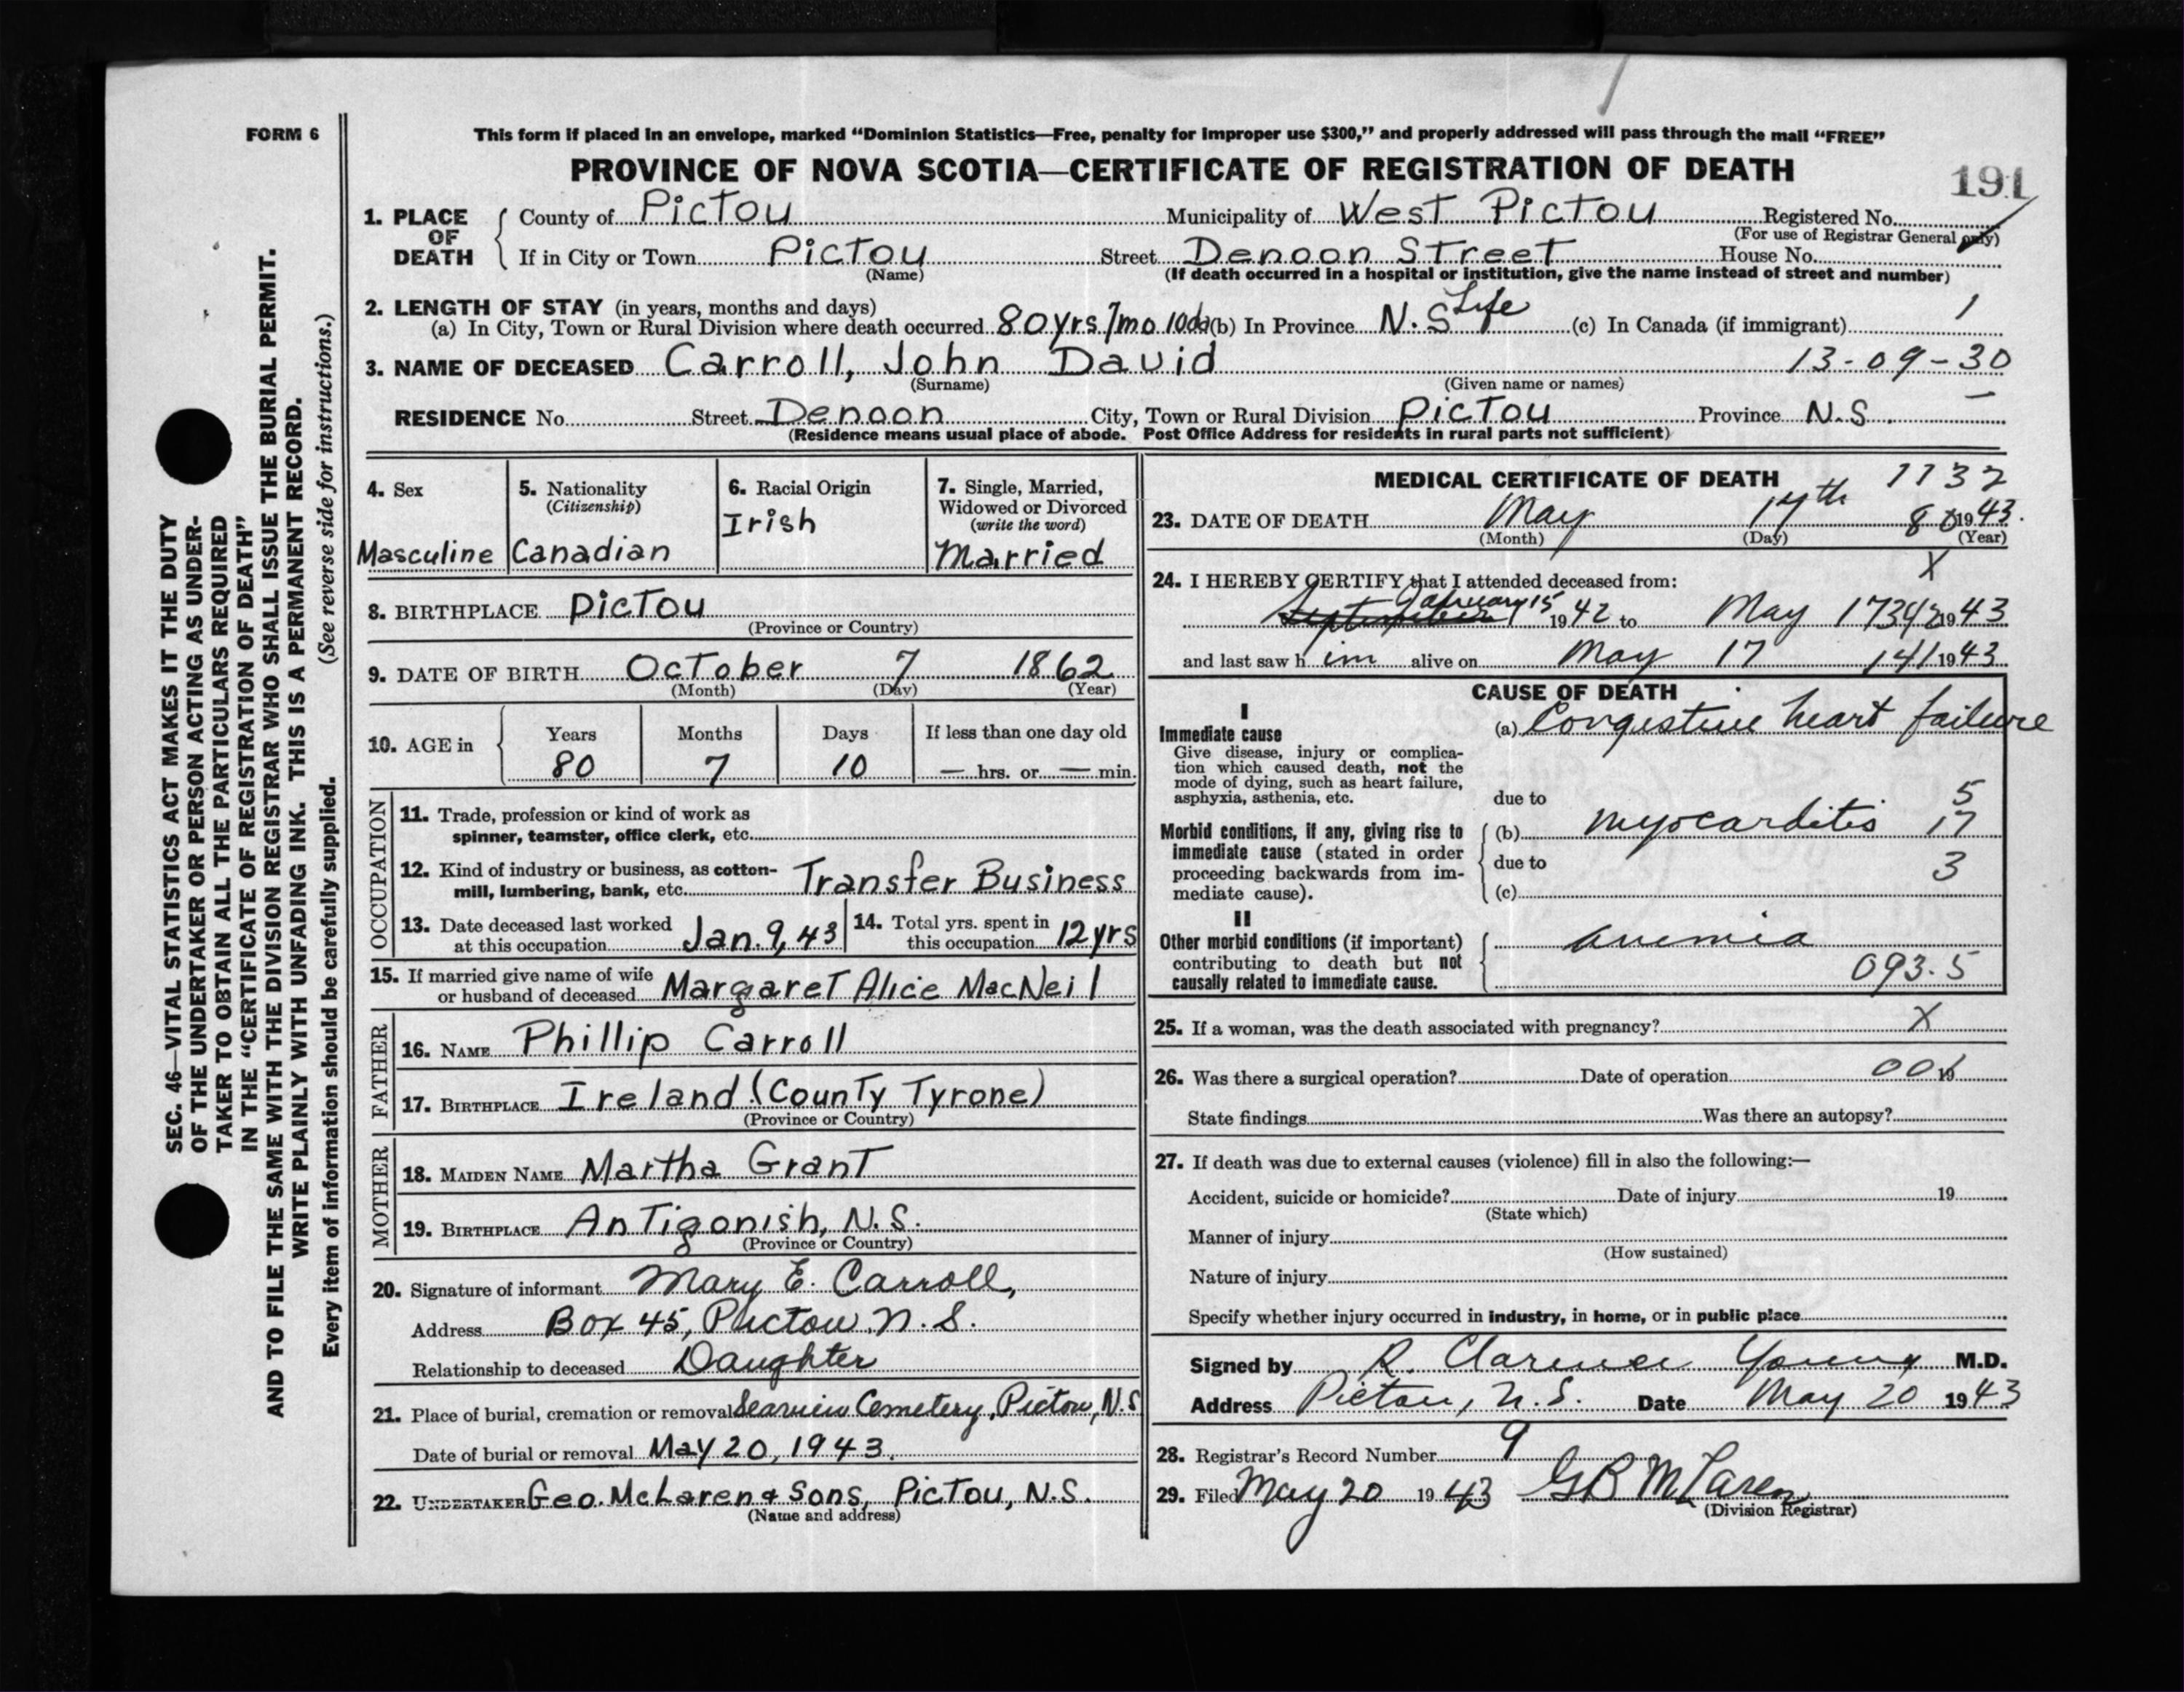 FORM 6
This form if placed in an envelope, marked “Dominion Statistics—Free, penalty for improper use $300,” and properly addressed will pass through the mail “FREE”
PROVINCE OF NOVA SCOTIA—CERTIFICATE OF REGISTRATION OF DEATH
191
1. PLACE OF DEATH County of Pictou Municipality of West Pictou Registered No.
(For use of Registrar General only)
If in City or Town Pictou Street Denoon Street House No.
(Name) (If death occurred in a hospital or institution, give the name instead of street and number)
2. LENGTH OF STAY (in years, months and days)
(a) In City, Town or Rural Division where death occurred 80 yrs 7 mo 10 da (b) In Province N.S Life (c) In Canada (if immigrant) 1
3. NAME OF DECEASED Carroll, John David 13-09-30
(Surname) (Given name or names)
RESIDENCE No. Street Denoon City, Town or Rural Division Pictou Province N.S. —
(Residence means usual place of abode. Post Office Address for residents in rural parts not sufficient)
4. Sex Masculine
5. Nationality (Citizenship) Canadian
6. Racial Origin Irish
7. Single, Married, Widowed or Divorced (write the word) Married
8. BIRTHPLACE Pictou
(Province or Country)
9. DATE OF BIRTH October 7 1862
(Month) (Day) (Year)
10. AGE in Years Months Days If less than one day old
80 7 10 — hrs. or — min.
OCCUPATION
11. Trade, profession or kind of work as
spinner, teamster, office clerk, etc.
12. Kind of industry or business, as cotton-
mill, lumbering, bank, etc. Transfer Business
13. Date deceased last worked at this occupation Jan. 9, 43
14. Total yrs. spent in this occupation 12 yrs
15. If married give name of wife
or husband of deceased Margaret Alice MacNeil
FATHER
16. NAME Phillip Carroll
17. BIRTHPLACE Ireland (County Tyrone)
(Province or Country)
MOTHER
18. MAIDEN NAME Martha Grant
19. BIRTHPLACE Antigonish, N.S.
(Province or Country)
20. Signature of informant Mary E. Carroll,
Address Box 45, Pictou, N.S.
Relationship to deceased Daughter
21. Place of burial, cremation or removal Seaview Cemetery, Pictou, N.S
Date of burial or removal May 20, 1943.
22. UNDERTAKER Geo. McLaren & Sons, Pictou, N.S.
(Name and address)
MEDICAL CERTIFICATE OF DEATH 1132
23. DATE OF DEATH May 17th 1943.
(Month) (Day) (Year)
X
24. I HEREBY CERTIFY that I attended deceased from:
January 15 1942 to May 17 1943
and last saw him alive on May 17 141 1943
CAUSE OF DEATH
I
Immediate cause (a) Congestive heart failure
Give disease, injury or complica-
tion which caused death, not the
mode of dying, such as heart failure,
asphyxia, asthenia, etc.
due to 5
Morbid conditions, if any, giving rise to (b) myocarditis 17
immediate cause (stated in order
due to 3
proceeding backwards from im-
mediate cause). (c)
II
Other morbid conditions (if important) anemia
contributing to death but not
causally related to immediate cause. 093.5
25. If a woman, was the death associated with pregnancy? X
26. Was there a surgical operation? Date of operation 00 19
State findings Was there an autopsy?
27. If death was due to external causes (violence) fill in also the following:—
Accident, suicide or homicide? Date of injury 19
(State which)
Manner of injury
(How sustained)
Nature of injury
Specify whether injury occurred in industry, in home, or in public place
Signed by R. Clarence Young M.D.
Address Pictou, N.S. Date May 20 1943
28. Registrar's Record Number 9
29. Filed May 20 1943 GB McLaren
(Division Registrar)
SEC. 46—VITAL STATISTICS ACT MAKES IT THE DUTY
OF THE UNDERTAKER OR PERSON ACTING AS UNDER-
TAKER TO OBTAIN ALL THE PARTICULARS REQUIRED
IN THE “CERTIFICATE OF REGISTRATION OF DEATH”
AND TO FILE THE SAME WITH THE DIVISION REGISTRAR WHO SHALL ISSUE THE BURIAL PERMIT.
WRITE PLAINLY WITH UNFADING INK. THIS IS A PERMANENT RECORD.
Every item of information should be carefully supplied. (See reverse side for instructions.)